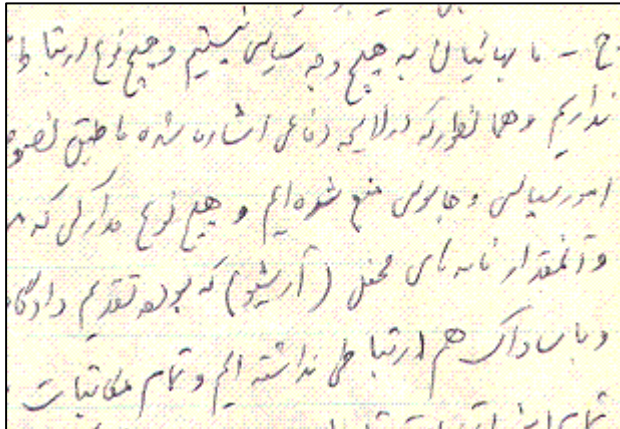 ج - ما بهائیان به هیچ وجه سیاسی نیستیم و هیچ نوع ارتبا
نداریم و همانطور که در لایحه دفاعی اشاره شده ما طبق نصو
امور سیاسی و جاسوسی منع شده ایم و هیچ نوع مدارکی که
و آنمقدار نامه های محفل (آرشیو) که بوده تقدیم دادگا
و با ساواک هم ارتباطی نداشته ایم و تمام مکاتبات